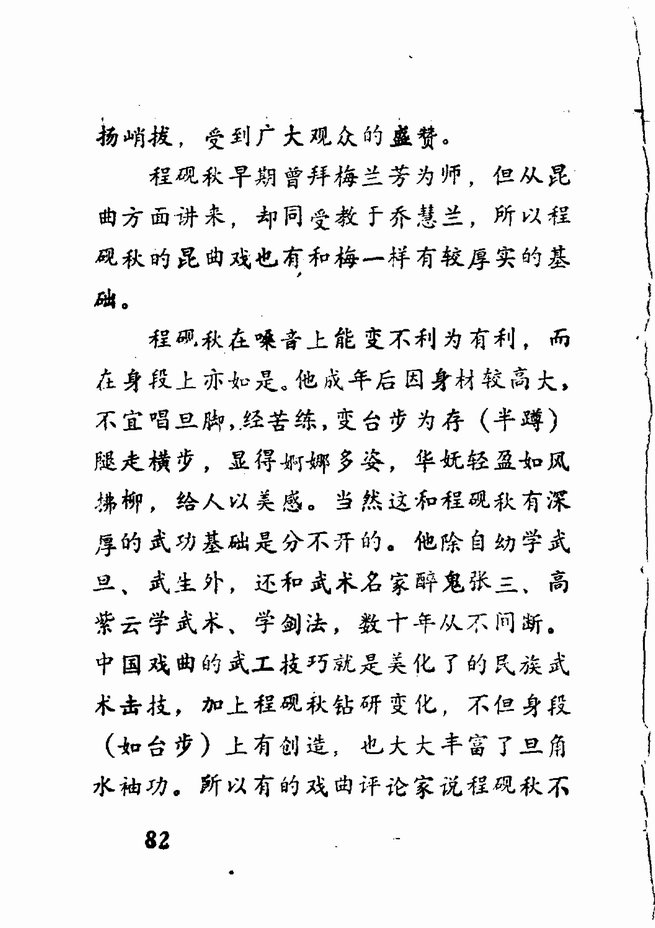 扬峭拔，受到广大观众的盛赞。
程砚秋早期曾拜梅兰芳为师，但从昆
曲方面讲来，却同受教于乔慧兰，所以程
砚秋的昆曲戏也有和梅一样有较厚实的基
础。
程砚秋在嗓音上能变不利为有利，而
在身段上亦如是。他成年后因身材较高大，
不宜唱旦脚，经苦练，变台步为存（半蹲）
腿走横步，显得婀娜多姿，华妩轻盈如风
拂柳，给人以美感。当然这和程砚秋有深
厚的武功基础是分不开的。他除自幼学武
旦、武生外，还和武术名家醉鬼张三、高
紫云学武术、学剑法，数十年从不间断。
中国戏曲的武工技巧就是美化了的民族武
术击技，加上程砚秋钻研变化，不但身段
（如台步）上有创造，也大大丰富了旦角
水袖功。所以有的戏曲评论家说程砚秋不
82